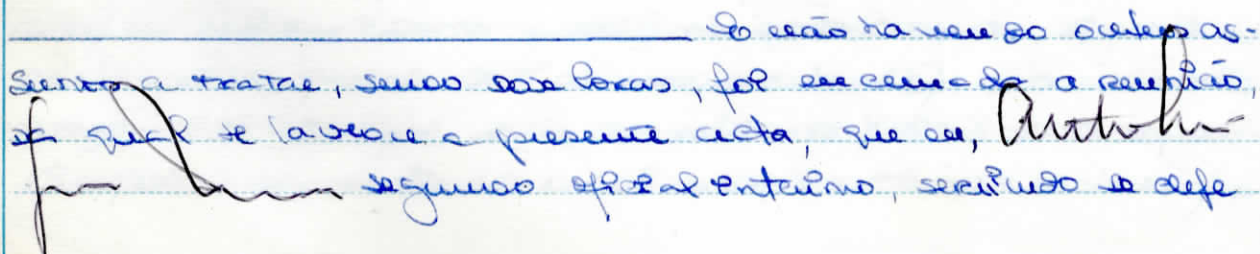 E não havendo outros as-
sunto a tratar, sendo doze horas, foi encerrada a reunião,
da qual se lavrou a presente acta, que eu,
segundo oficial interino, servindo de chefe